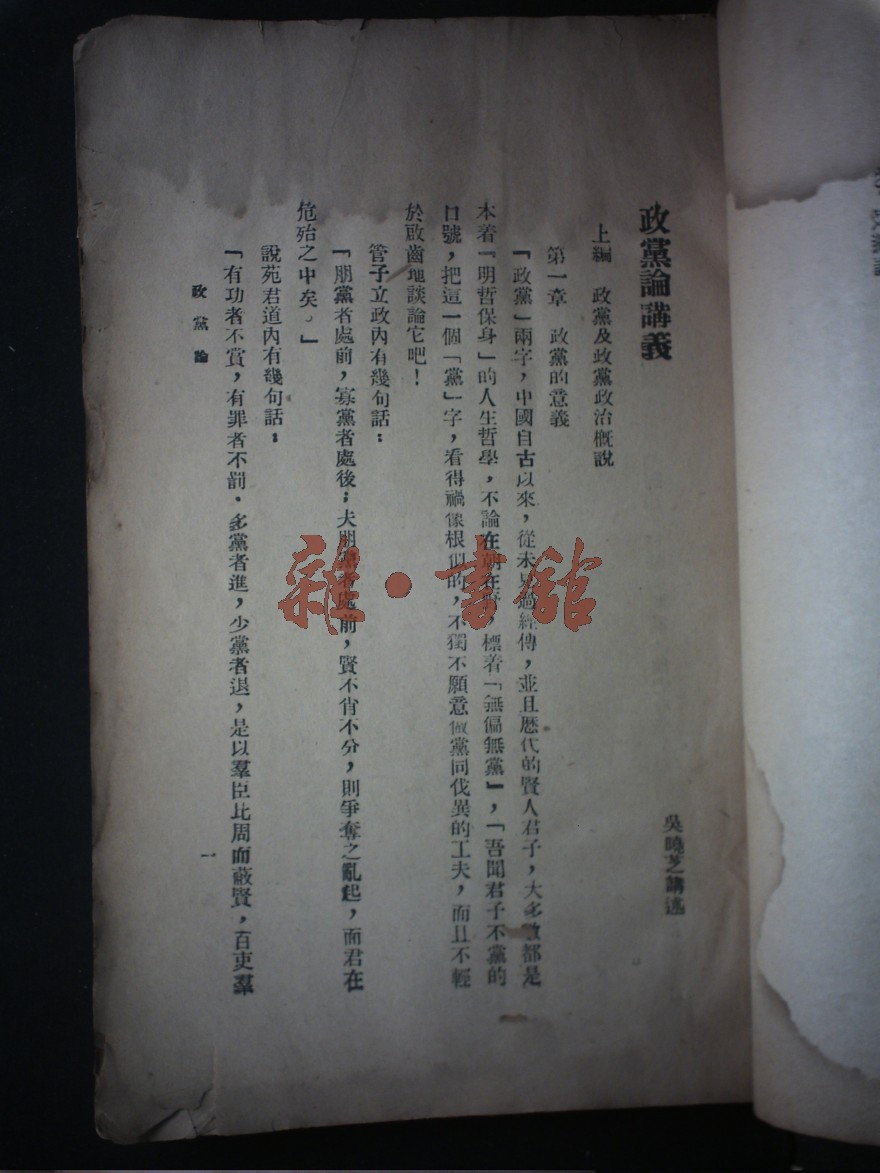 政黨論講義
吳曉芝講述
上編　政黨及政黨政治概說
第一章　政黨的意義
「政黨」兩字，中國自古以來，從未見過經傳，並且歷代的賢人君子，大多數都是
本着「明哲保身」的人生哲學，不論在朝在野，標着「無偏無黨」，「吾聞君子不黨的
口號，把這一個「黨」字，看得禍像根似的，不獨不願意做黨同伐異的工夫，而且不輕
於啟齒地談論它吧！
管子立政內有幾句話：
「朋黨者處前，寡黨者處後；夫朋黨者處前，賢不肖不分，則爭奪之亂起，而君在
危殆之中矣。」
說苑君道內有幾句話：
「有功者不賞，有罪者不罰．多黨者進，少黨者退，是以羣臣比周而蔽賢，百吏羣
政黨論
一
雜·書館